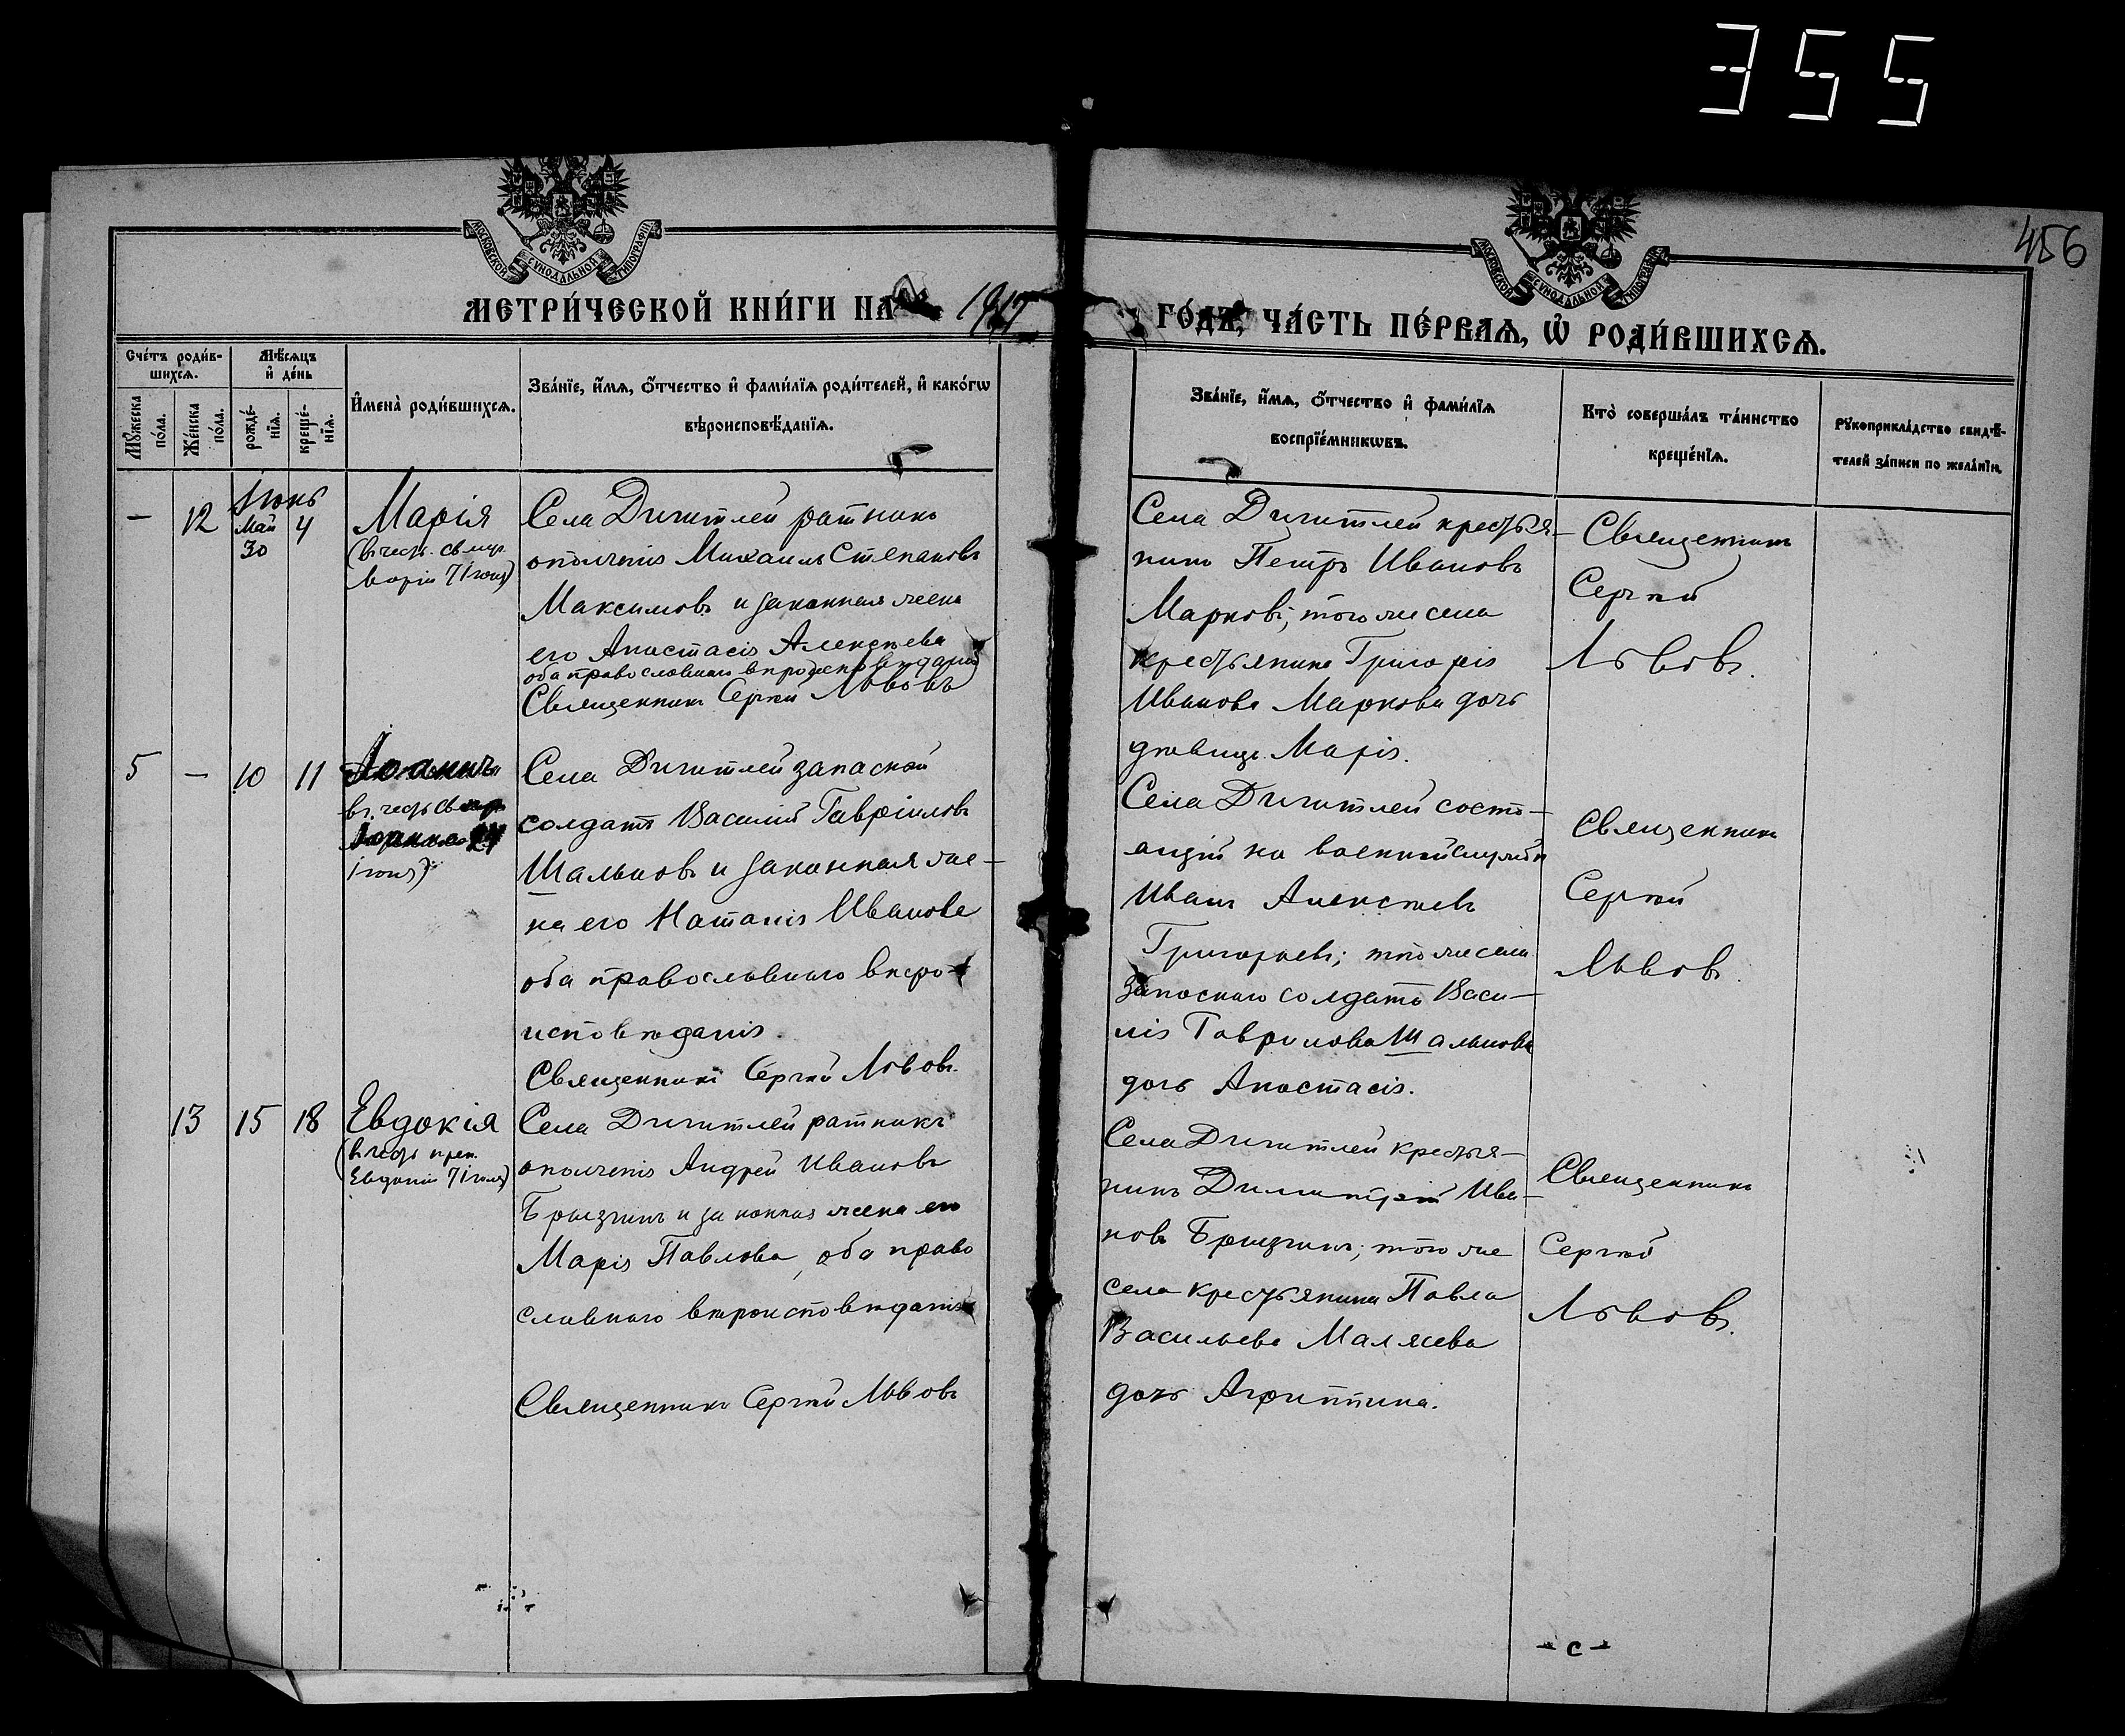 355
456
МОСКОВСКОЙ СѴНОДАЛЬНОЙ ТИПОГРАФІИ
МОСКОВСКОЙ СѴНОДАЛЬНОЙ ТИПОГРАФІИ
МЕТРИ́ЧЕСКОЙ КНИ́ГИ НА 1917
ГО́ДЪ, ЧА́СТЬ ПЕ́РВАѦ, Ѡ҆ РОДИ́ВШИХСѦ.
Сче́тъ роди́в-
шихсѧ.
Мѣ́сѧцъ
и҆ де́нь
Мꙋ́жеска по́ла.
Же́нска по́ла.
рожде́-
нїѧ.
креще́-
нїѧ.
И҆мена̀ роди́вшихсѧ.
Зва́нїе, и҆́мѧ, ѻ҆́тчество и҆ фами́лїѧ роди́телей, и҆ како́гѡ
вѣроисповѣ́данїѧ.
Зва́нїе, и҆́мѧ, ѻ҆́тчество и҆ фами́лїѧ
воспрїе́мникѡвъ.
Кто̀ соверша́лъ та́инство
креще́нїѧ.
Рꙋкоприкла́дство свидѣ́-
телей за́писи по жела́нїю.
Іюнь
— 12 Май 30 4
Марія
(въ честь св. мир.
Маріи 7 Іюня)
Села Дигитлей ратникъ
ополченія Михаилъ Степановъ
Максимовъ и законная жена
его Анастасія Алексѣева
оба православнаго вѣроисповѣданія
Священникъ Сергій Львовъ
Села Дигитлей крестья-
нинъ Петръ Ивановъ
Марковъ; того же села
крестьянина Григорія
Иванова Маркова дочь
дѣвица Марія.
Священникъ
Сергій
Львовъ.
5 — 10 11
Іоаннъ
въ честь св.
Іоанна 24
Іюня)
Села Дигитлей запасной
солдатъ Василій Гавріиловъ
Шальновъ и законная же-
на его Наталія Иванова
оба православнаго вѣро-
исповѣданія.
Священникъ Сергій Львовъ.
Села Дигитлей состо-
ящій на военной службѣ
Иванъ Алексѣевъ
Григорьевъ; того же села
запаснаго солдата Васи-
лія Гаврилова Шальнова
дочь Анастасія.
Священникъ
Сергій
Львовъ.
13 15 18
Евдокія
(въ честь преп.
Евдокіи 7 Іюля)
Села Дигитлей ратникъ
ополченія Андрей Ивановъ
Брызгинъ и законная жена его
Марія Павлова, оба право
славнаго вѣроисповѣданія
Священникъ Сергій Львовъ
Села Дигитлей крестья-
нинъ Димитрій Ива-
новъ Брызгинъ; того же
села крестьянина Павла
Васильева Маляева
дочь Агриппина.
Священникъ
Сергій
Львовъ.
- с -